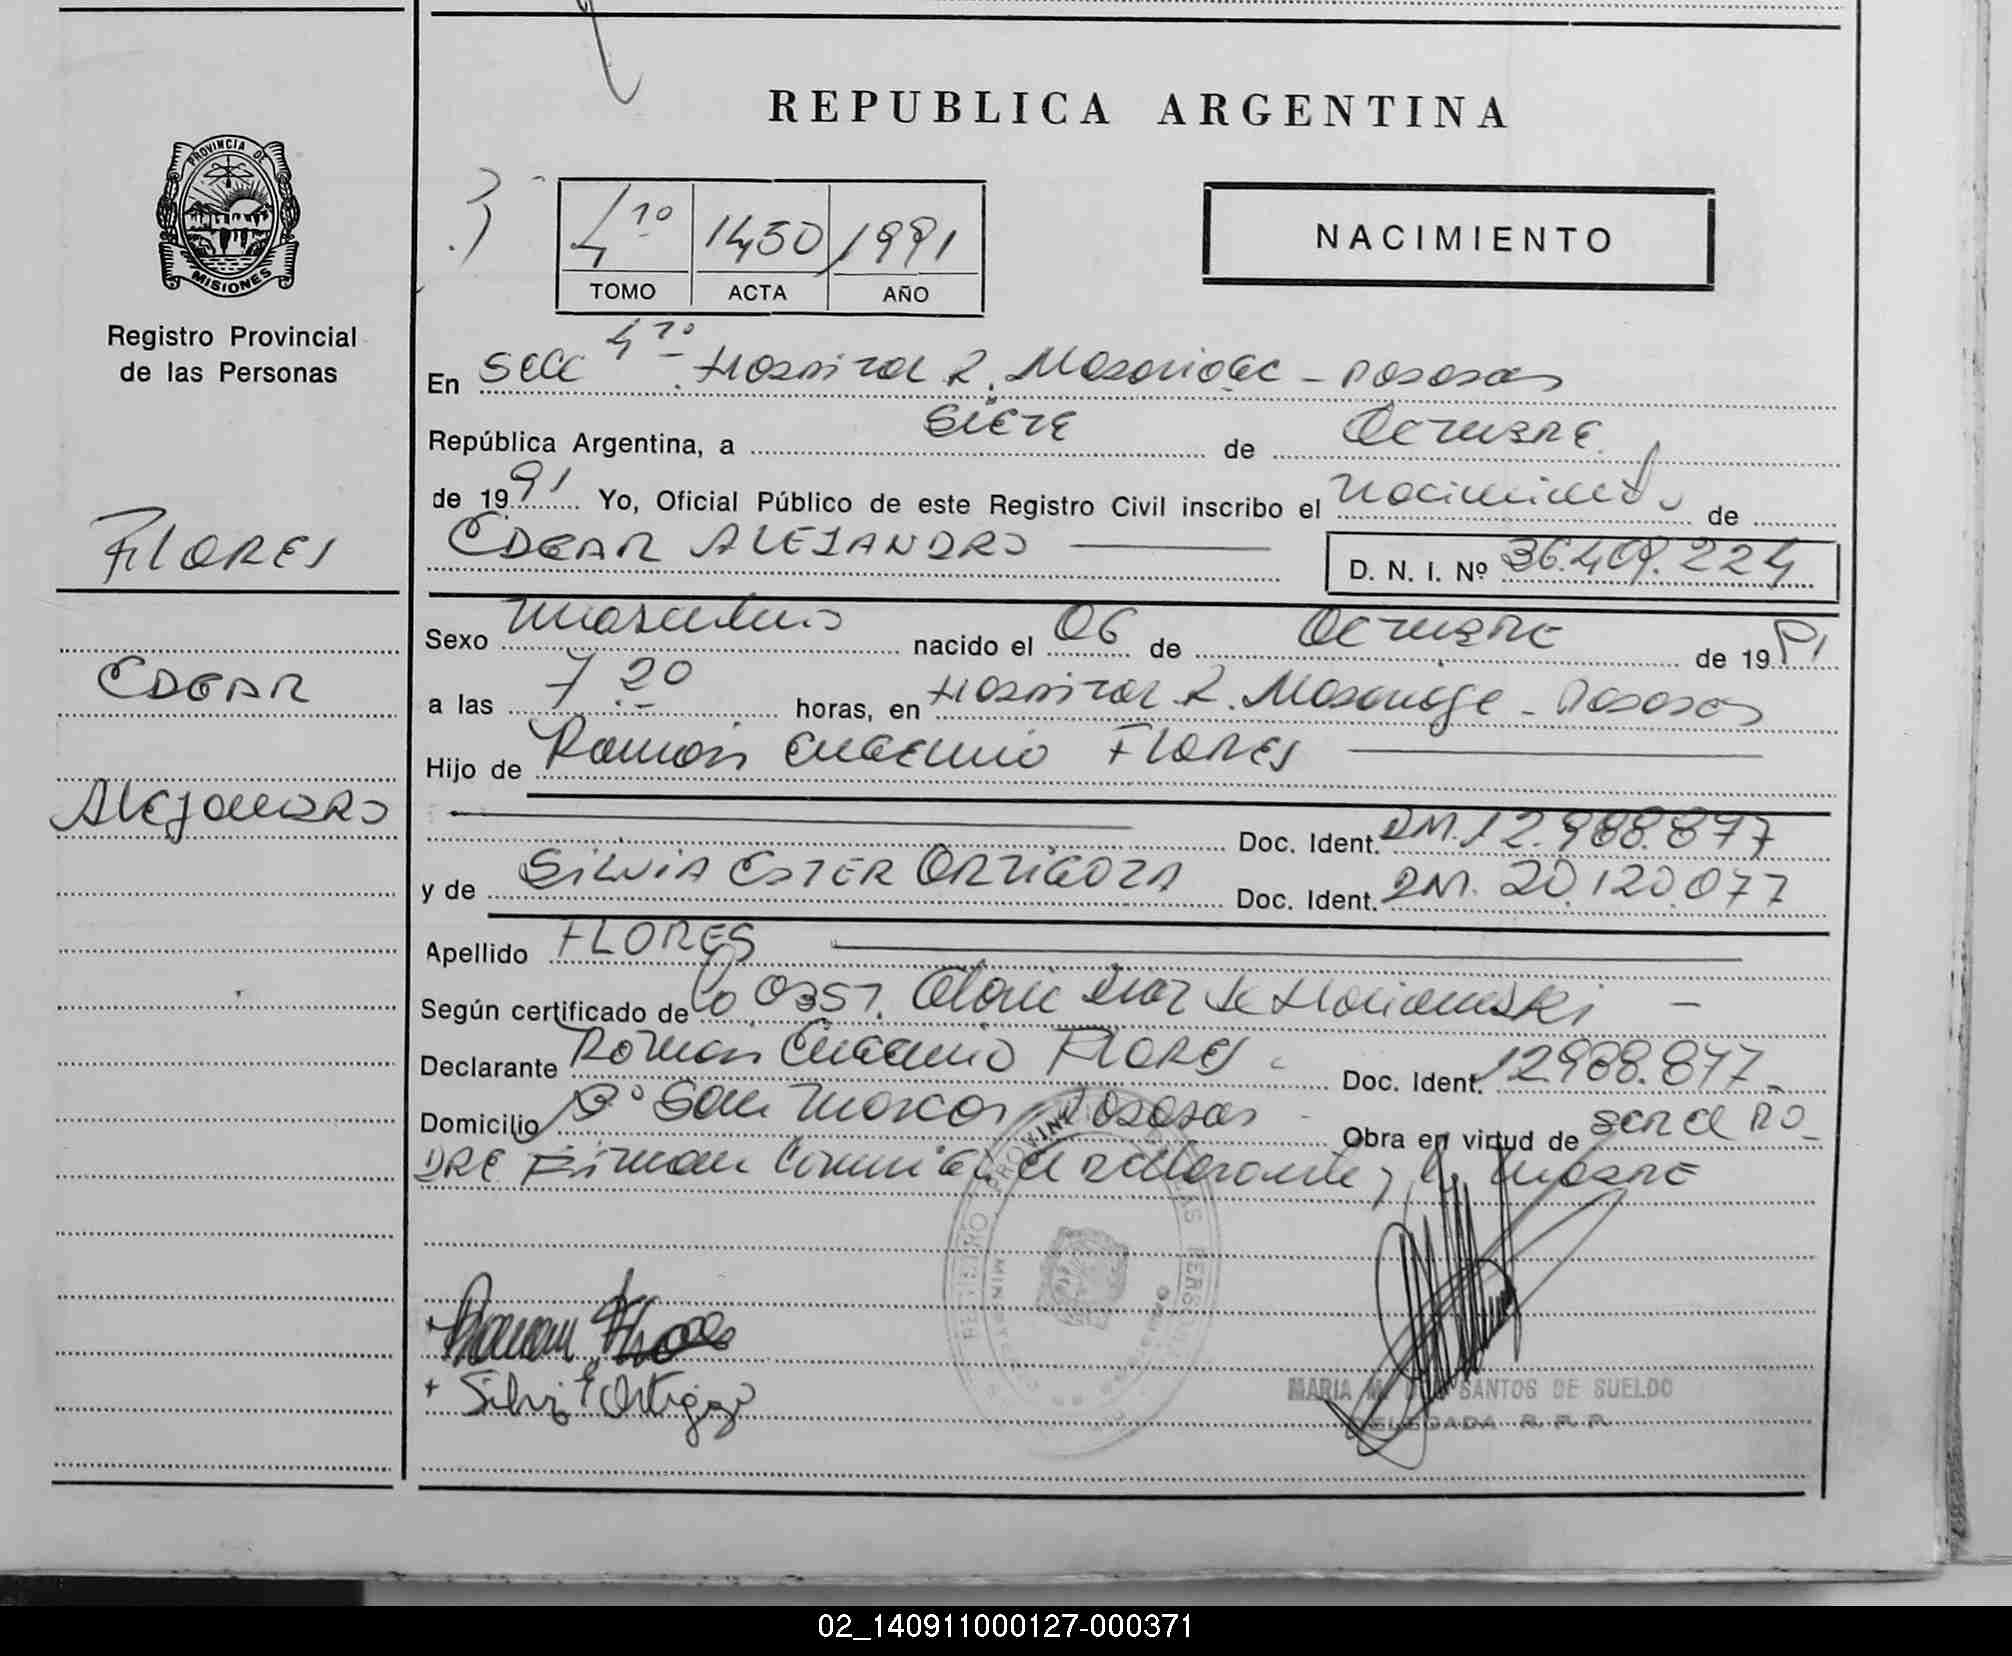 REPUBLICA ARGENTINA
PROVINCIA DE
MISIONES
Registro Provincial
de las Personas
FLORES
EDGAR
Alejandro
4to 1430 1991
TOMO ACTA AÑO
NACIMIENTO
En Secc 4to. Hospital R. Madariaga - Posadas
República Argentina, a Siete de Octubre
de 1991 Yo, Oficial Público de este Registro Civil inscribo el nacimiento de
EDGAR ALEJANDRO D. N. I. Nº 36.409.224
Sexo masculino nacido el 06 de Octubre de 1991
a las 7 20 horas, en Hospital R. Madariaga - Posadas
Hijo de Ramón Eugenio FLORES
Doc. Ident. DNI. 12.988.877
y de SILVIA ESTER ORTIGOZA Doc. Ident. DNI. 20.120.077
Apellido FLORES
Según certificado de la Obst. Diaz de
Declarante Ramón Eugenio FLORES - Doc. Ident. 12988.877-
Domicilio Bº San Marcos Posadas - Obra en virtud de ser el PA-
DRE Firman Conmigo el declarante y la madre
REGISTRO PROVINCIAL DE LAS PERSONAS
Ramon Flores
Silvi E Ortigoza
MARIA SANTOS DE SUELDO
DELEGADA R. P. P.
02_140911000127-000371